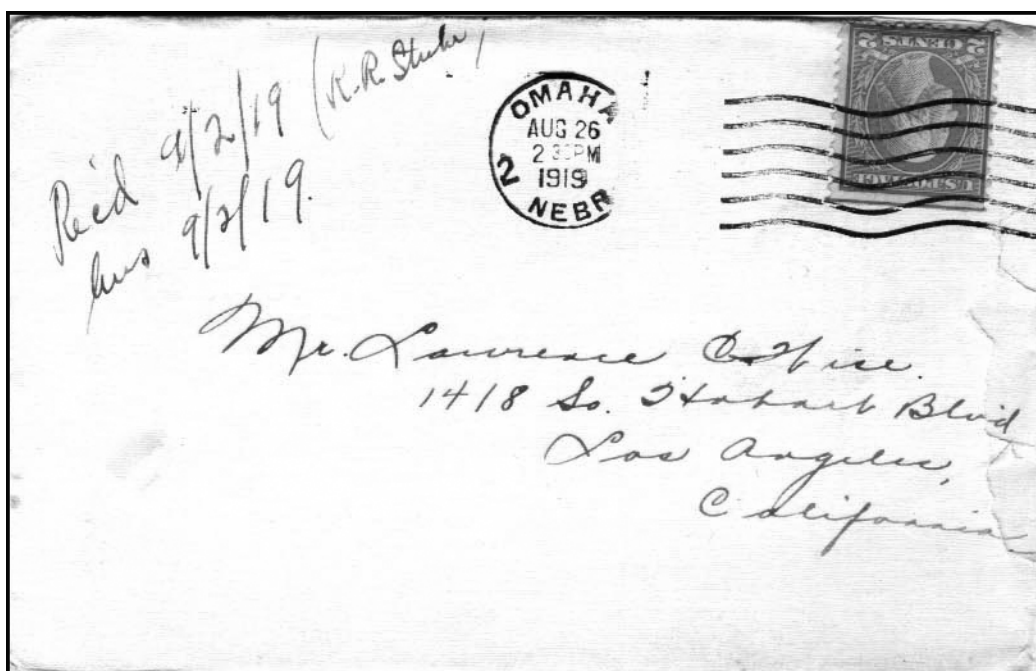 Rec'd 9/2/19 (R.R. Strike)
Ans 9/2/19.
OMAHA
AUG 26
2 30 PM
1919
2 NEBR
2 CENTS 2
U.S. POSTAGE
Mr. Lawrence C. Wise.
1418 So. Hobart Blvd
Los Angeles,
California